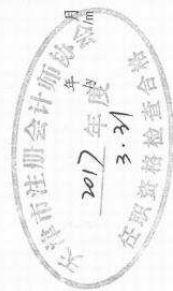 天津市注册会计师协会
2017 年度
3.31
任职资格检查合格
年
月
/m